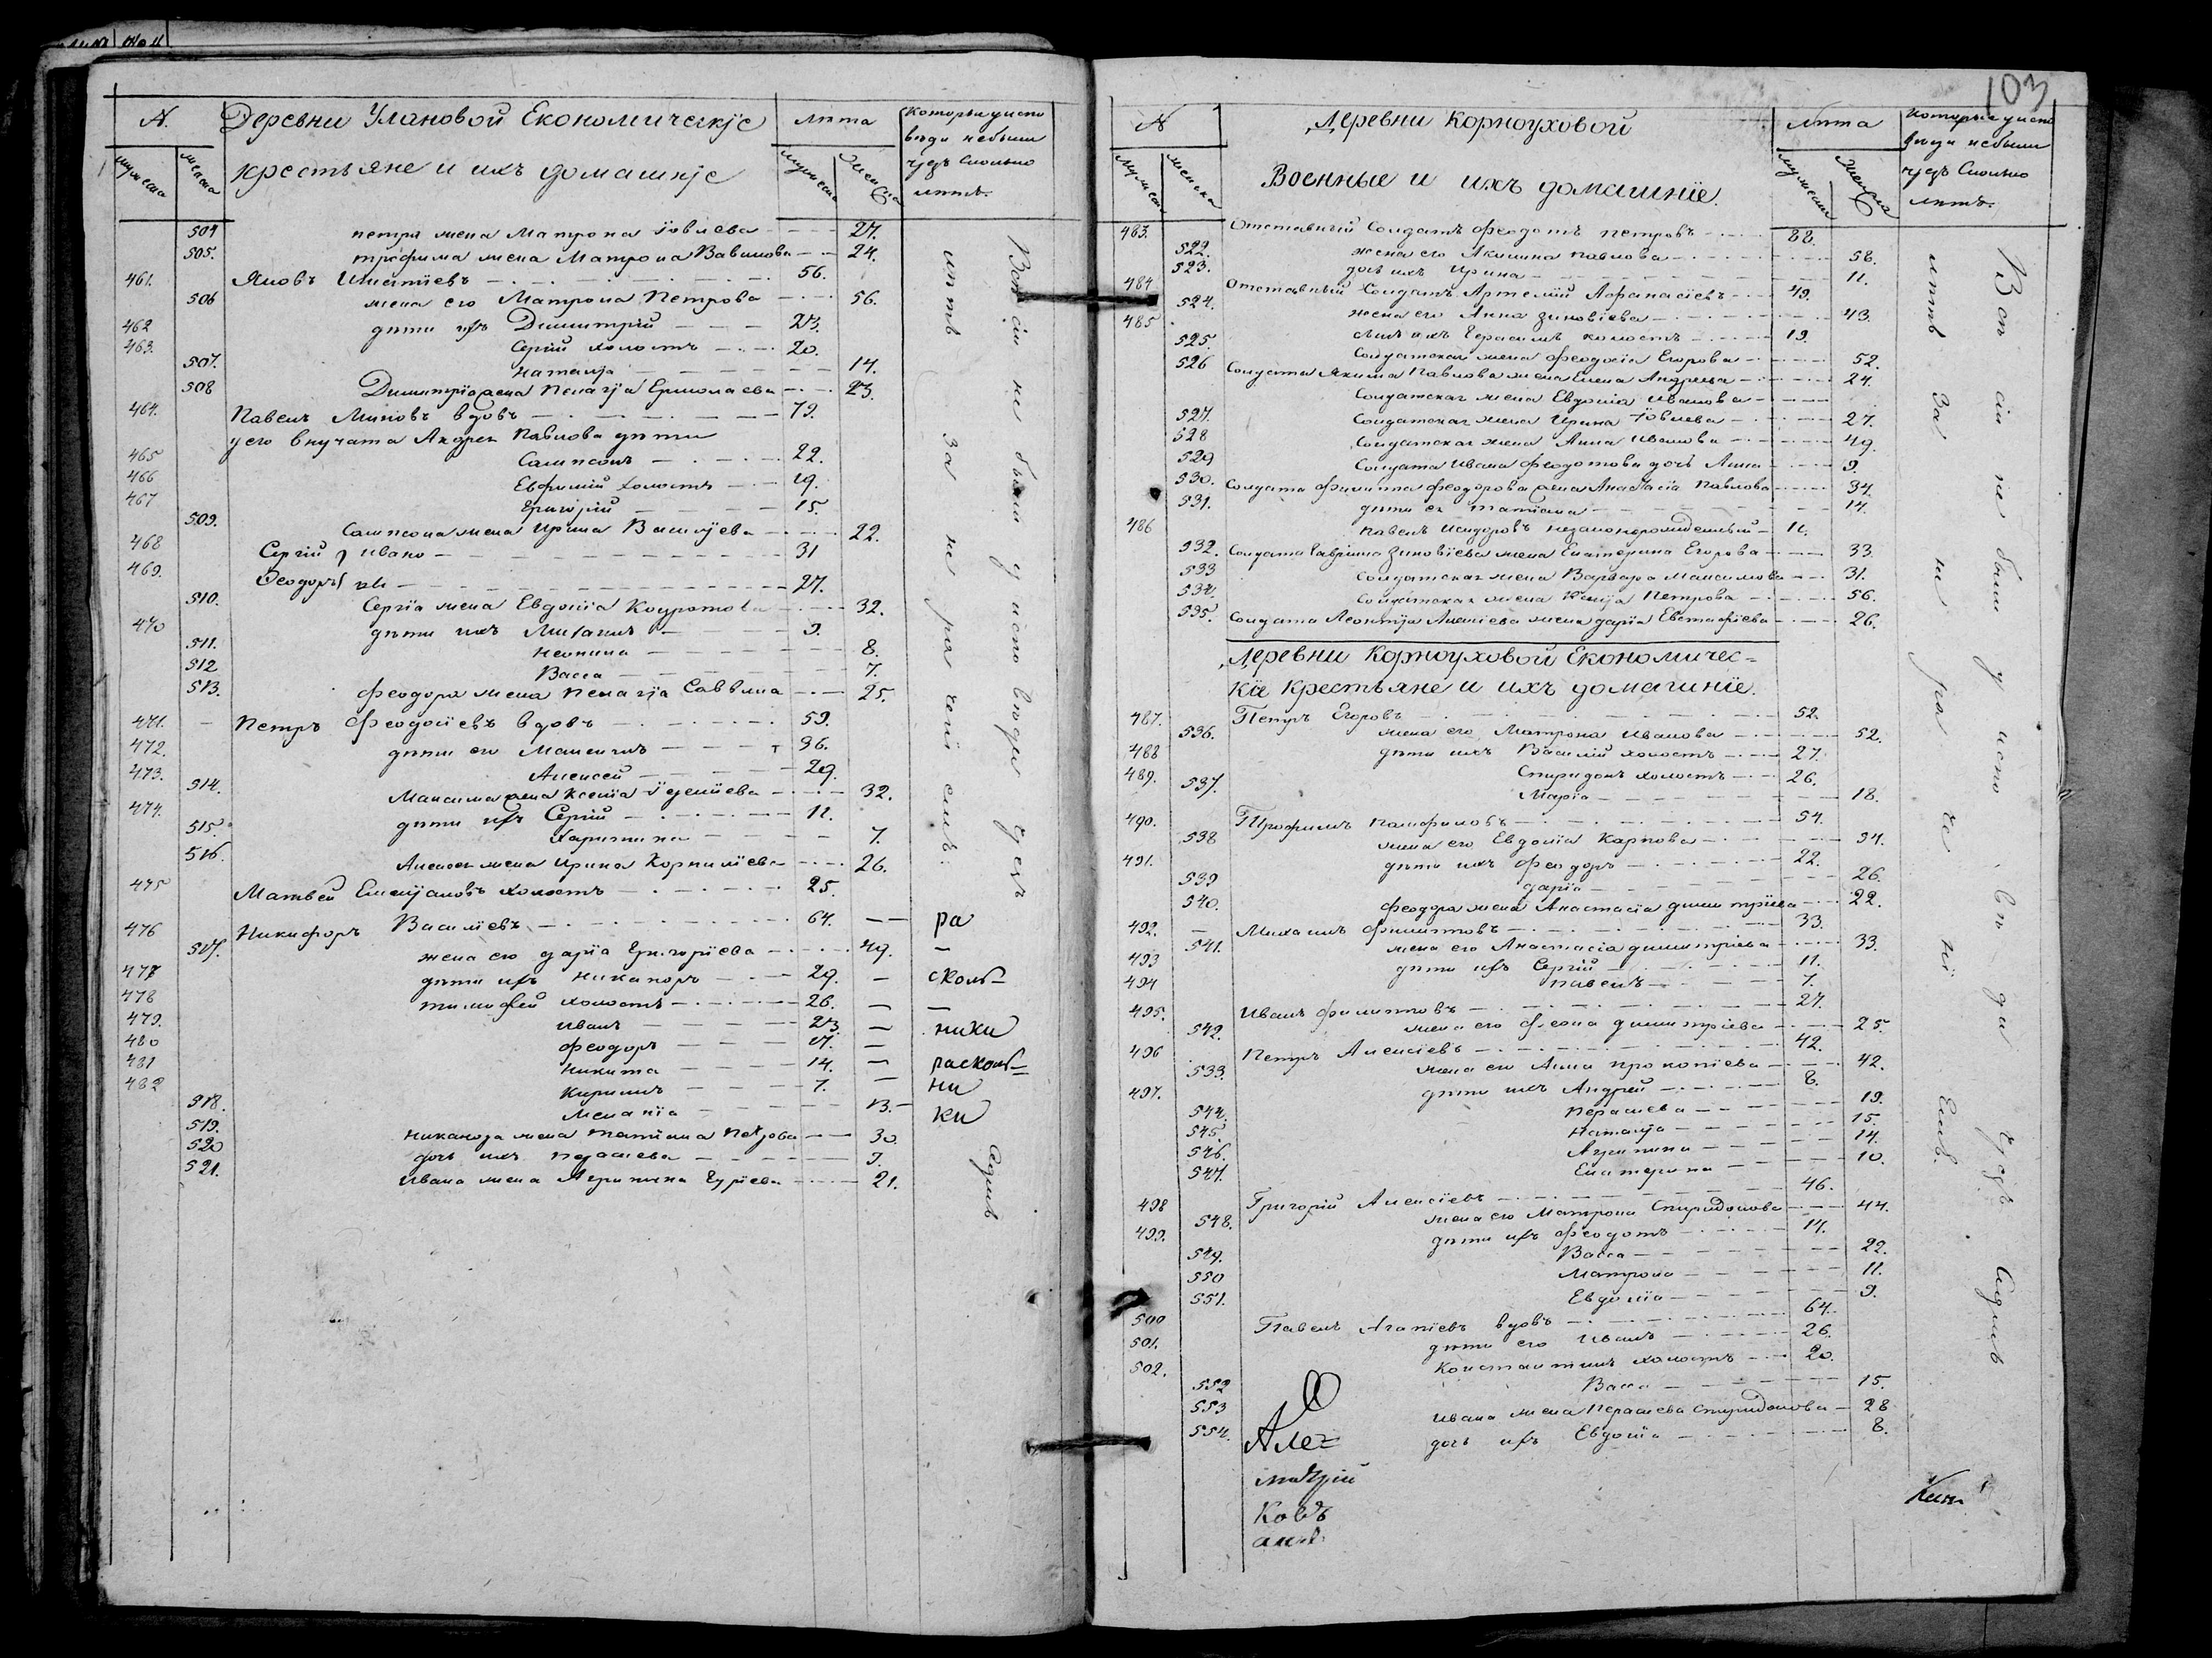 N. Деревни Улановой Економическіе лѣта которые уиспо
крестьяне и ихъ домашніе
мужеска женска мужеска женска
веди небыли
чрезъ сколько
лѣтъ.
504 петра жена Матрона Іовлева 27.
505. трофима жена Матрона Вавилова 24.
461. Яковъ Игнатіевъ 56.
506 жена его Матрона Петрова 56.
462 дѣти ихъ Димитрій 23.
463. Сергій холостъ 20.
507. наталја 14.
508 Димитріа жена Пелагіја Ермолаева 23.
464. Павелъ Миновъ вдовъ 79.
у его внучата Андрея Павлова дѣти
465 Сампсонъ 22.
466 Евфимій холостъ 19.
467 Григорій 15.
509. Сампсона жена Ирина Василјева 22.
468 Сергій Ивано 31
469. Феодоръ вы 27.
510. Сергіа жена Евдокіа Кондратова 32.
470 дѣти ихъ Михаилъ 9.
511. неонила 8.
512 Васса 7.
513. феодора жена Пелагја Саввина 25.
471. Петръ Феодосіевъ вдовъ 59.
472. дѣти его Максимъ 36.
473. Алексей 29.
514. Максима жена Ксеніа 32.
474. дѣти ихъ Сергій 11.
515. Харитина 7.
516. Алексея жена Ирина Корниліева 26.
475 Матвей Емелјановъ холостъ 25.
476 Никифоръ Василіевъ 64. ра
517. жена его даріа Григоріева 49.
477 дѣти ихъ никаноръ 29. сколь=
478 тимофей холостъ 26.
479. иванъ 23. ники
480 феодоръ 17.
481 никита 14. расколь=
482 Кирилъ 7. ни
518. Меланіа 13. ки
519. никанора жена татіана Петрова 30
520 дочь ихъ параскева 9.
521. ивана жена Агрипина Гуріева 21.
Вси сіи не были у испо веди чрезъ
семь лѣтъ за не ра ченіемъ
103
N Деревни Корноуховой лѣта которые уиспо
Военные и ихъ домашніе.
мужеска женска мужеска женска
веди небыли
чрезъ сколько
лѣтъ.
483. Отставный Солдатъ феодотъ петровъ 88.
522. жена его Акилина павлова 58.
523. дочь ихъ Ирина 11.
484 Отставный Солдатъ Артемій Афанасіевъ 49.
524. жена его Анна зиновіева 43.
485 сынъ ихъ Герасимъ холостъ 19.
525. Солдатская жена феодосіа Егорова 52.
526 Солдата Якима Павлова жена Елена Андреева 24.
Солдатская жена Евдокіа иванова
527. Солдатская жена Ирина Іовлева 27.
528 Солдатская жена Анна иванова 49.
529 Солдата ивана феодотова дочь Анна 9.
530. Солдата филиппа феодорова жена Анастасіа Павлова 34.
531. дѣти ея татіана 14.
486 павелъ Исидоровъ незаконорожденный 11.
532. Солдата Гавріила зиновіева жена Екатерина Егорова 33.
533 Солдатская жена Варвара Максимова 31.
534. Солдатская жена Ксеніја Петрова 56.
535. Солдата Леонтја Алексіева жена даріа Евстафіева 26.
Деревни Корноуховой Економичес=
кіе крестьяне и ихъ домашніе.
487. Петръ Егоровъ 52.
536. жена его Матрона иванова 52.
488 дѣти ихъ Василій холостъ 27.
489. Спиридонъ холостъ 26.
537. Маріа 18.
490. Трофимъ памфиловъ 54.
538 жена его Евдокіа Карпова 54.
491. дѣти ихъ феодоръ 22.
539 даріа 26.
540. феодора жена Анастасіа димитріева 22.
492. Михаилъ филиповъ 33.
541. жена его Анастасіа димитріева 33.
493 дѣти ихъ Сергій 11.
494 павелъ 7.
495. Иванъ филиповъ 27.
542. жена его феона димитріева 25.
496 Петръ Алексіевъ 42.
533. жена его Анна прокопіева 42.
497. дѣти ихъ Андрей 8.
544. параскева 19.
545. наталја 15.
546. Агрипина 14.
547. Екатерина 10.
498 Григорій Алексіевъ 46.
548. жена его Матрона Спиридонова 44.
499. дѣти ихъ феодотъ 14.
549. Васса 22.
550 Матрона 11.
551. Евдокіа 9.
500 Павелъ Агапіевъ вдовъ 64.
501. дѣти его иванъ 26.
502. Константинъ холостъ 20.
552 Васса 15.
553 ивана жена параскева Спиридонова 28
554. дочь ихъ Евдокіа 8.
Вси сіи не были у испо веди чрезъ седмь
лѣтъ за не ра че ні емъ.